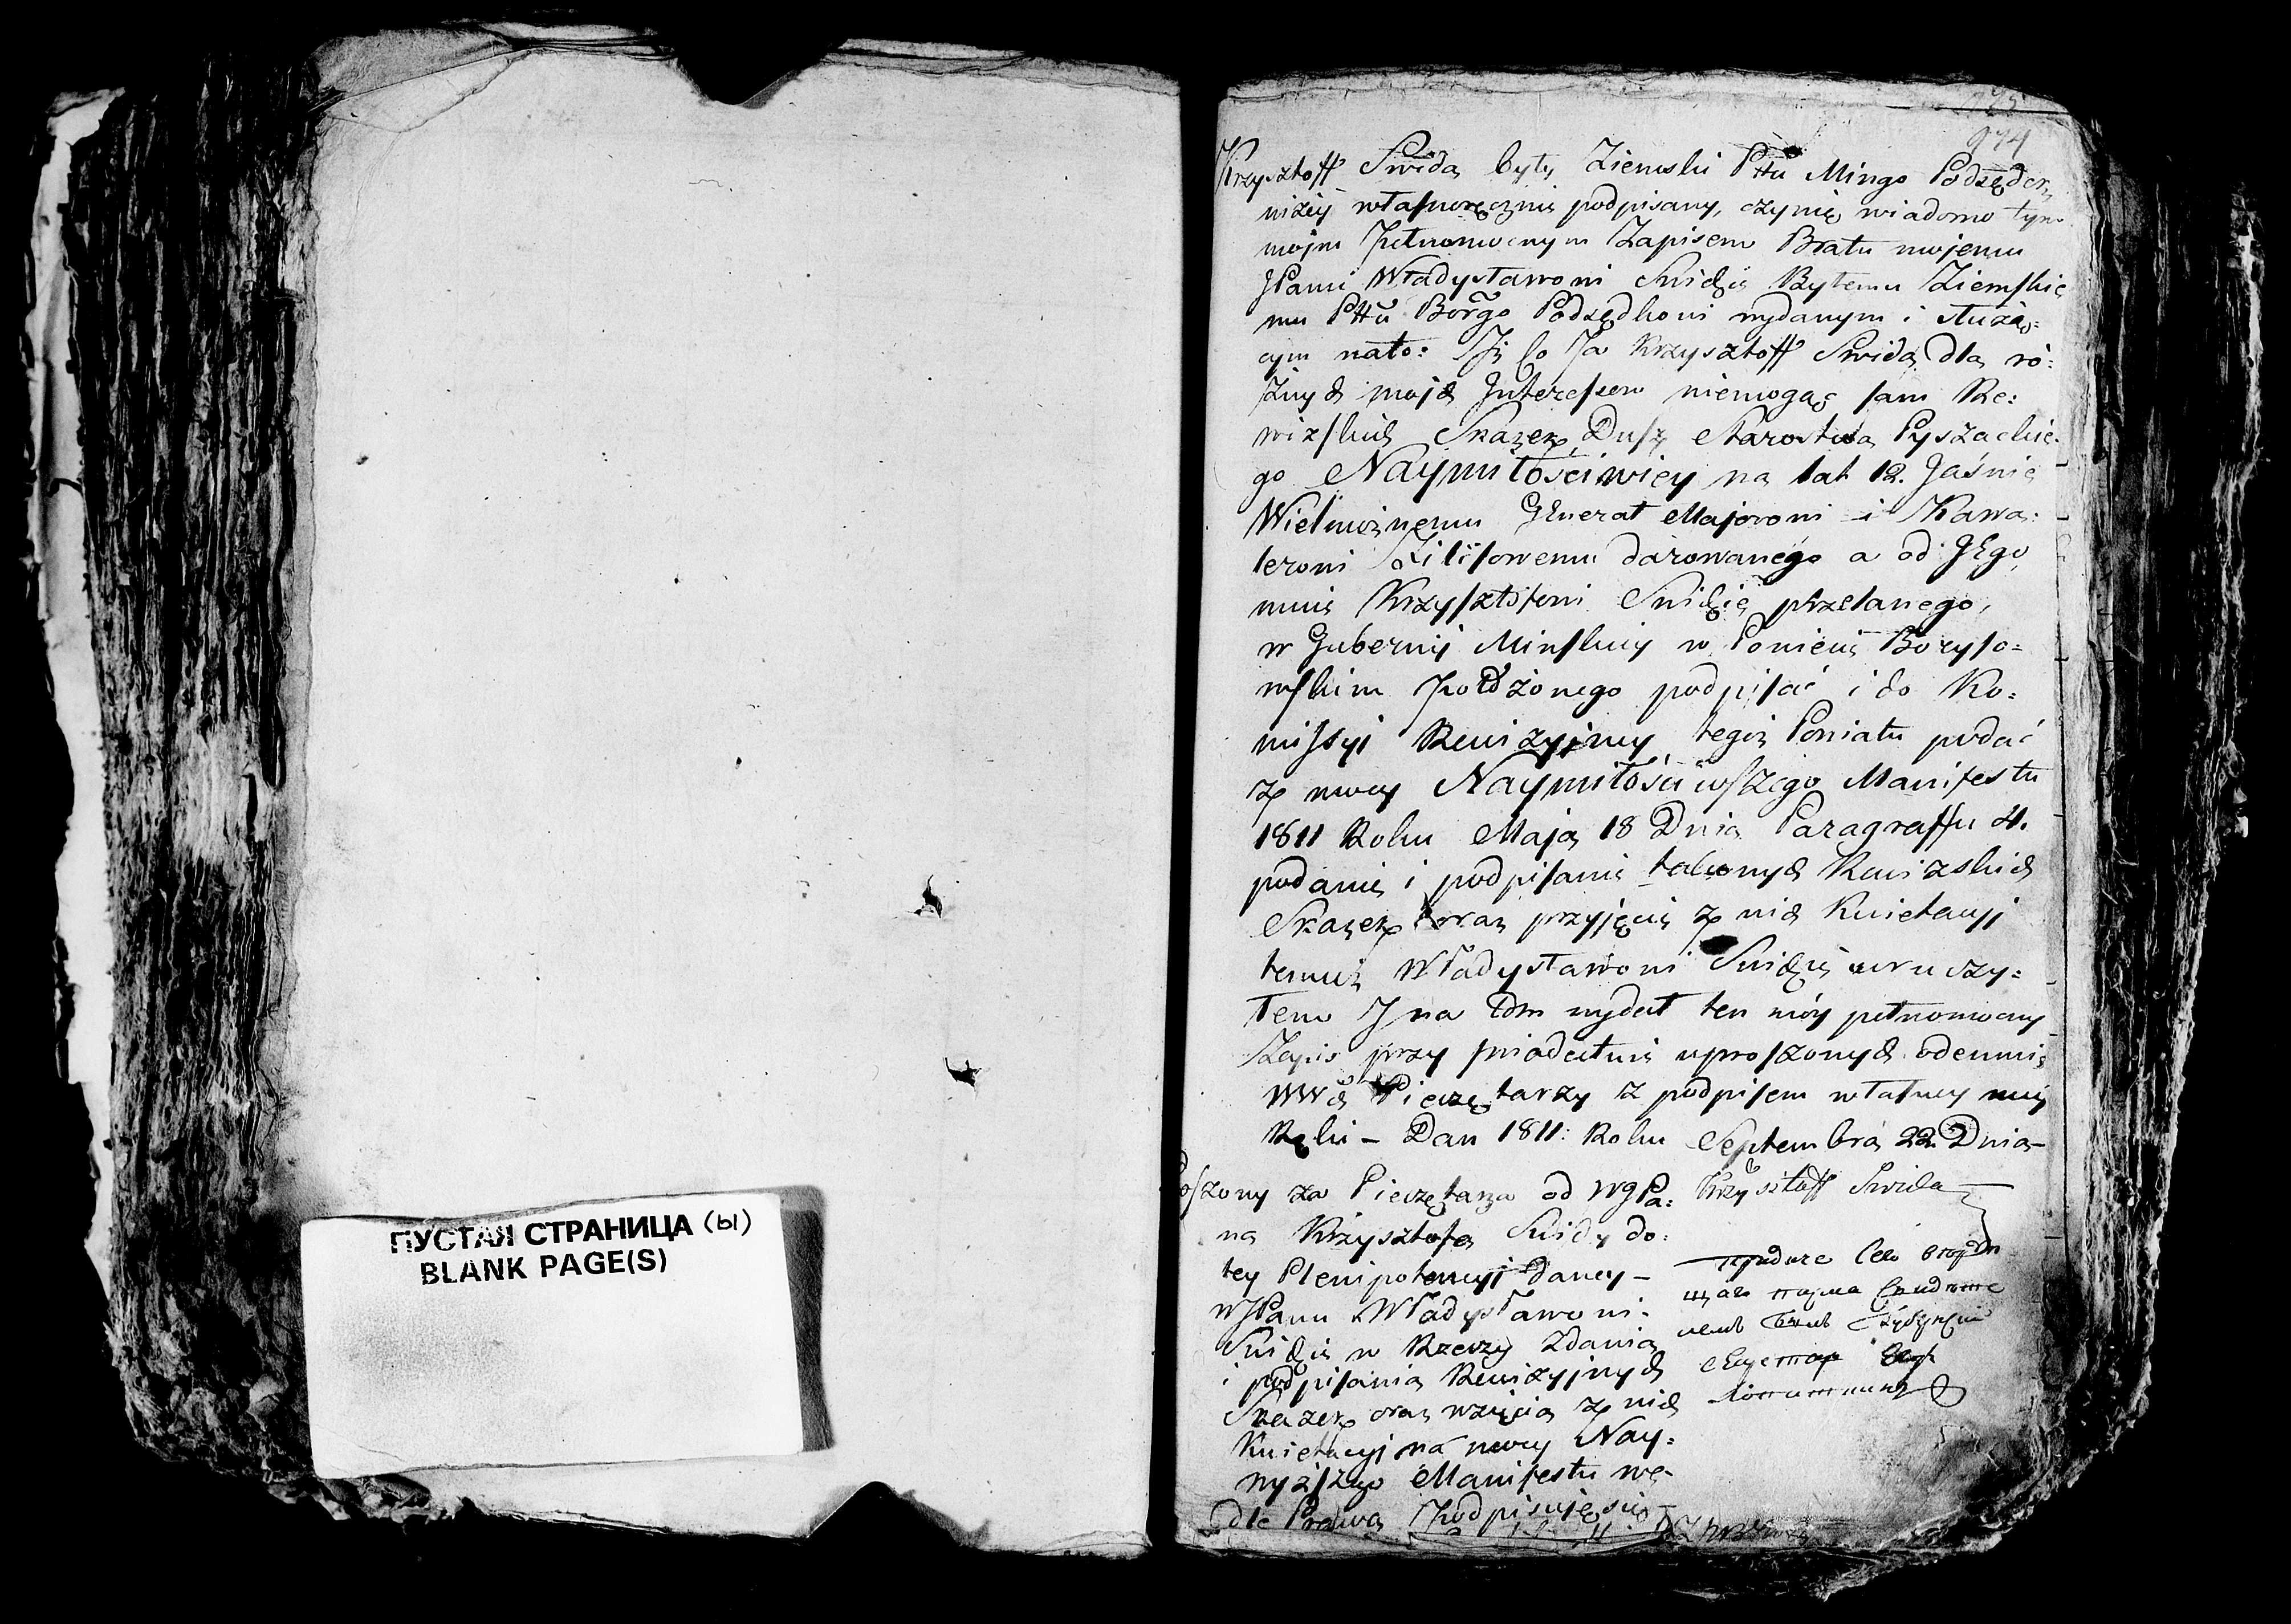 ПУСТАЯ СТРАНИЦА (ы)
BLANK PAGE(S)
974
Krzysztoff Swida były Ziemski Pttu Mingo Podsędek
niżey własnoręcznie podpisany, czynię wiadomo tym
moim Pełnomocnym Zapisem Bratu mojemu
JPanu Władysławowi Swidzie Byłemu Ziemskie
mu Pttu Borgo Podsędkowi wydanym i służą=
cym na to: Iż co Ja Krzysztoff Swida dla ró=
żnych moich Interesow niemogąc sam Re=
wizskich Skazek Dusz Starostwa Pyszackie=
go Naymiłościwiey na lat 12. Jaśnie
Wielmożnemu Generał Majorowi i Kawa=
lerowi darowanego a od Jego
mnie Krzysztofowi Swidzie przelanego,
w Gubernij Minskiey w Powiecie Boryso=
wskim położonego podpisać i do Ko=
missyi Rewizyjney tegoż Powiatu podać
z mocy Naymiłościwszego Manifestu
1811 Roku Maja 18 Dnia Paragraffu 4.
podanie i podpisanie takowych Rewizskich
Skazek oraz przyjęcie z nich Kwietacyi
temuż Władysławowi Swidzie poruczy=
łem I na tom wydał ten móy pełnomocny
Zapis przy świadectwie uproszonych odemnie
WW.ch Pieczętarzy z podpisem własney mey
Ręki – Dan 1811: Roku Septembra 22. Dnia –
Krzysztoff Swida
Proszony za Pieczętarza od WJPa:
na Krzysztofa Swidy do
tey Plenipotencyi daney –
WJPanu Władysławowi
Swidzie w Rzeczy Zdania
i podpisania Rewizyjnych
Skazek oraz wzięcia z nich
Kwietacyi na mocy Nay=
wyższego Manifestu we=
dle Prawa Podpisuję się